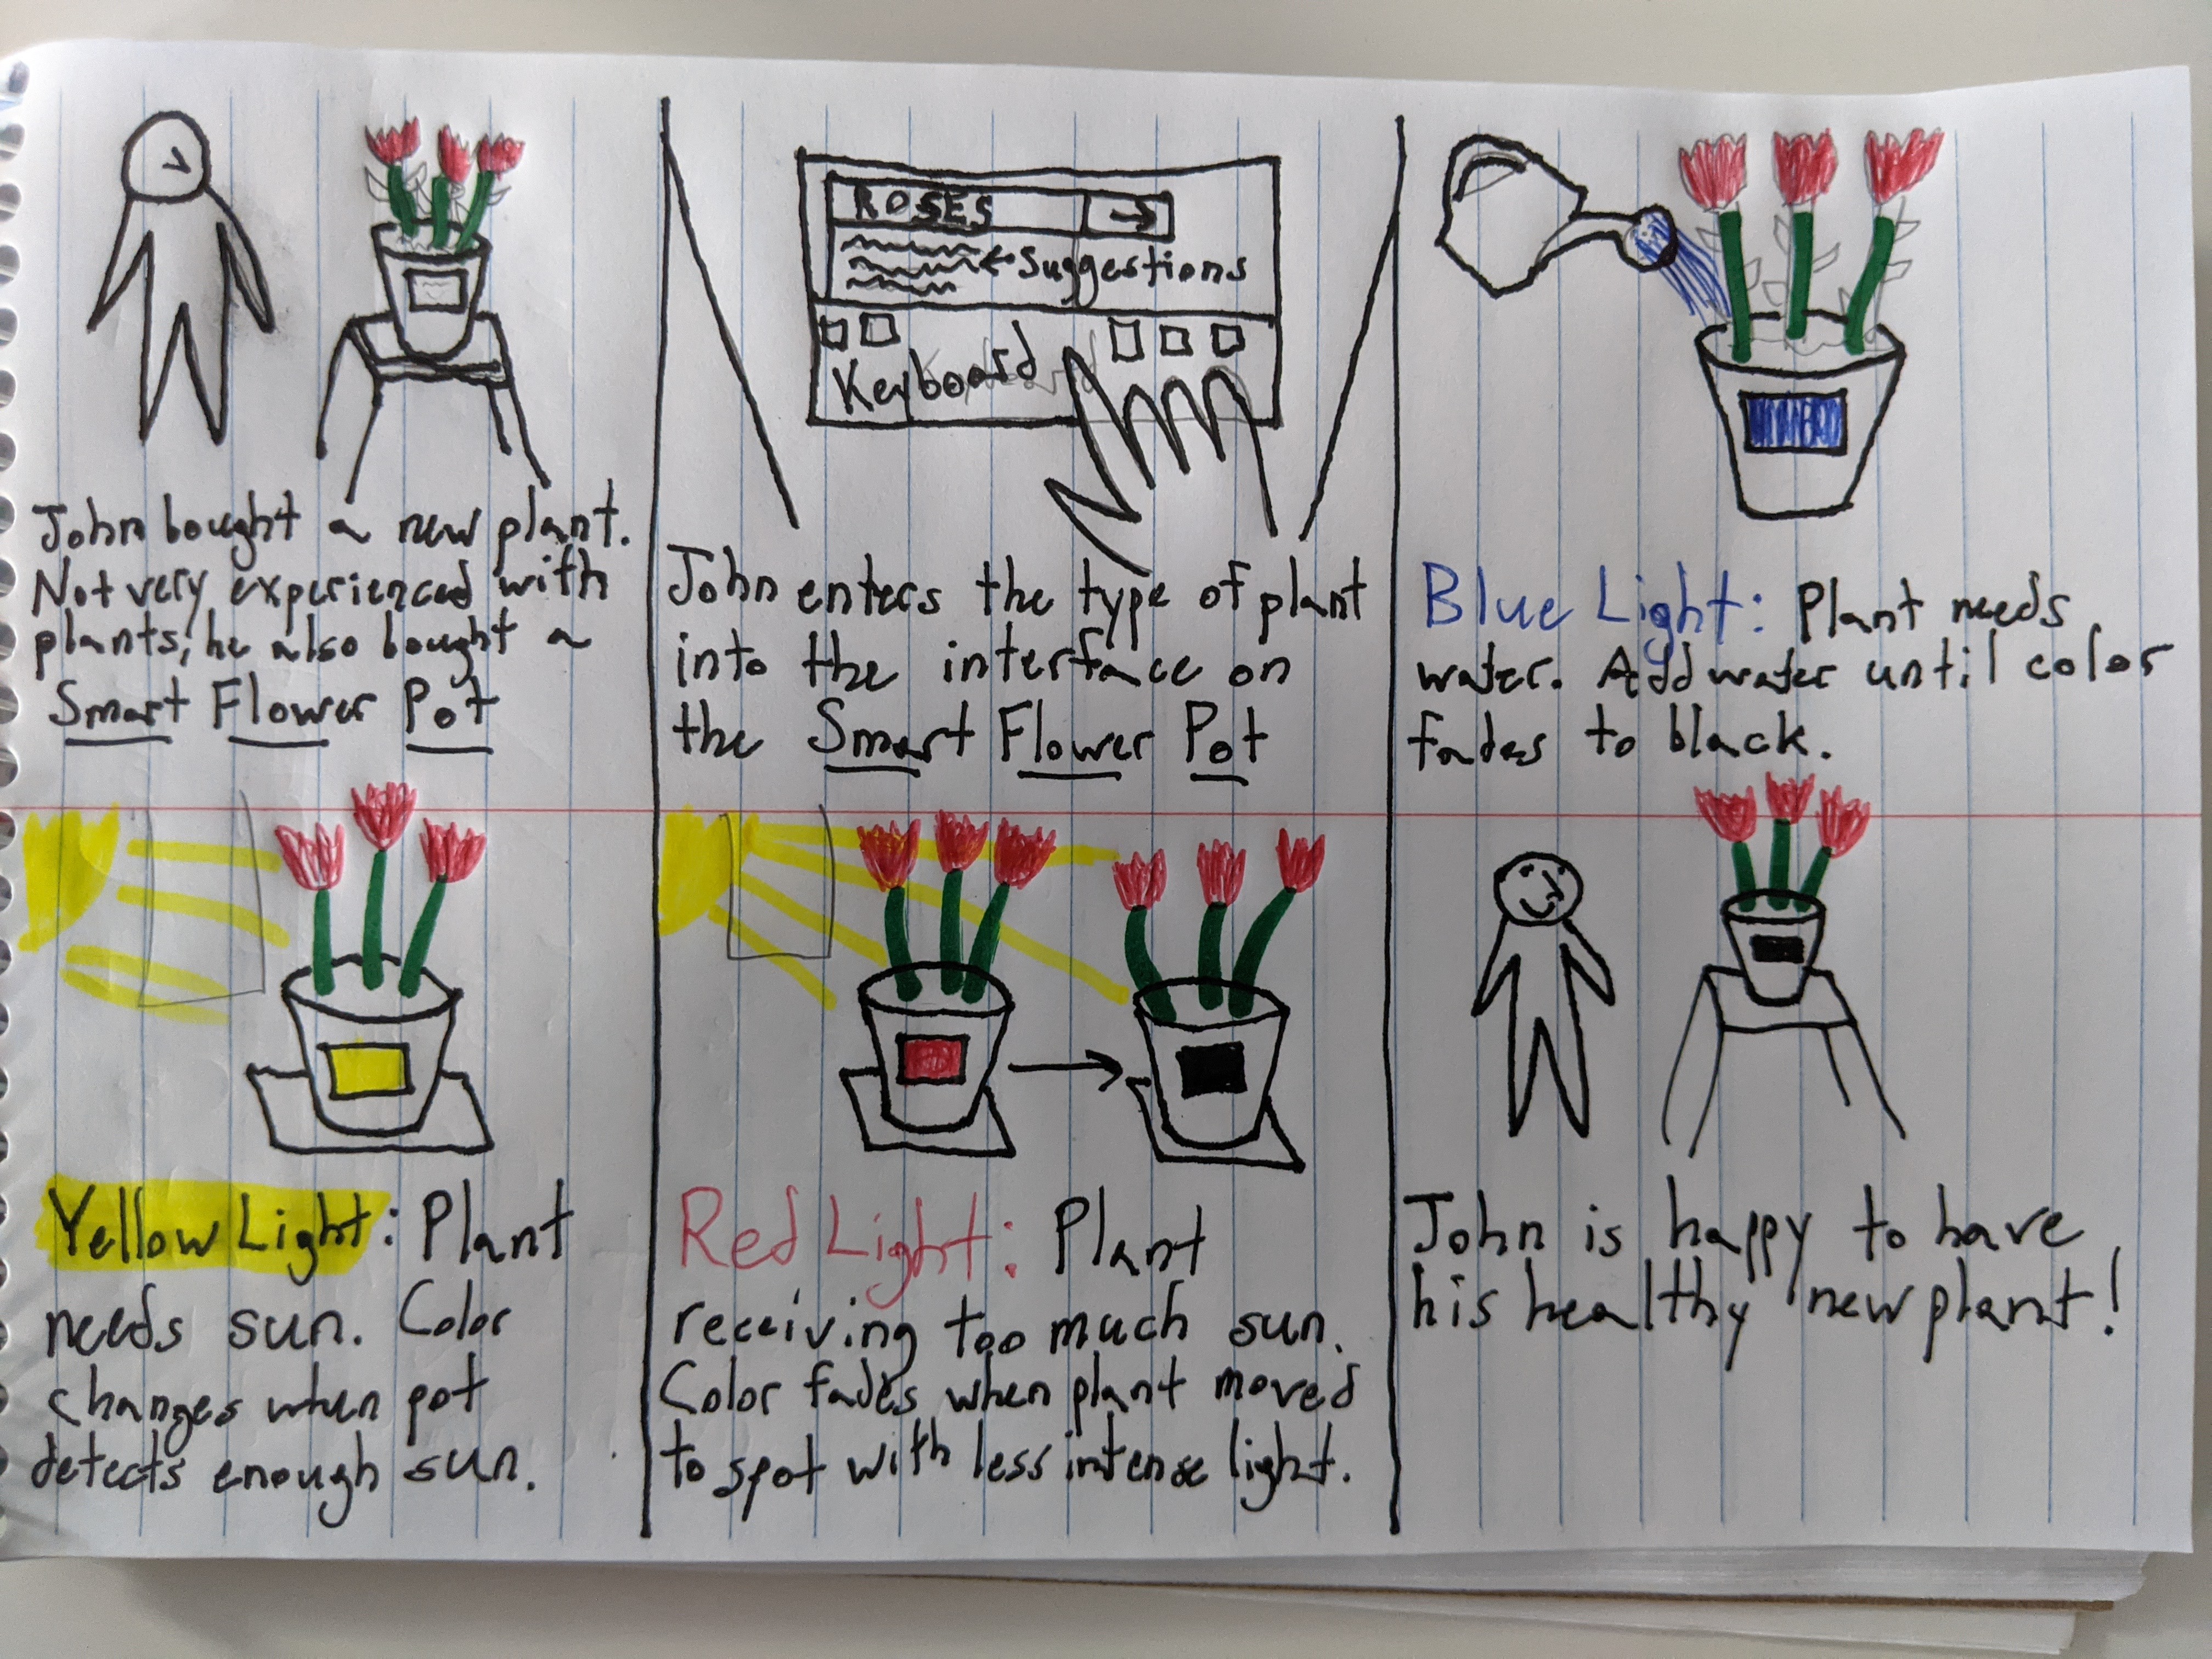 John bought a new plant.
Not very experienced with
plants, he also bought a
Smart Flower Pot
ROSES →
←Suggestions
Keyboard
John enters the type of plant
into the interface on
the Smart Flower Pot
Blue Light: Plant needs
water. Add water until color
fades to black.
Yellow Light: Plant
needs sun. Color
changes when pot
detects enough sun.
Red Light: Plant
receiving too much sun.
Color fades when plant moved
to spot with less intense light.
John is happy to have
his healthy new plant!